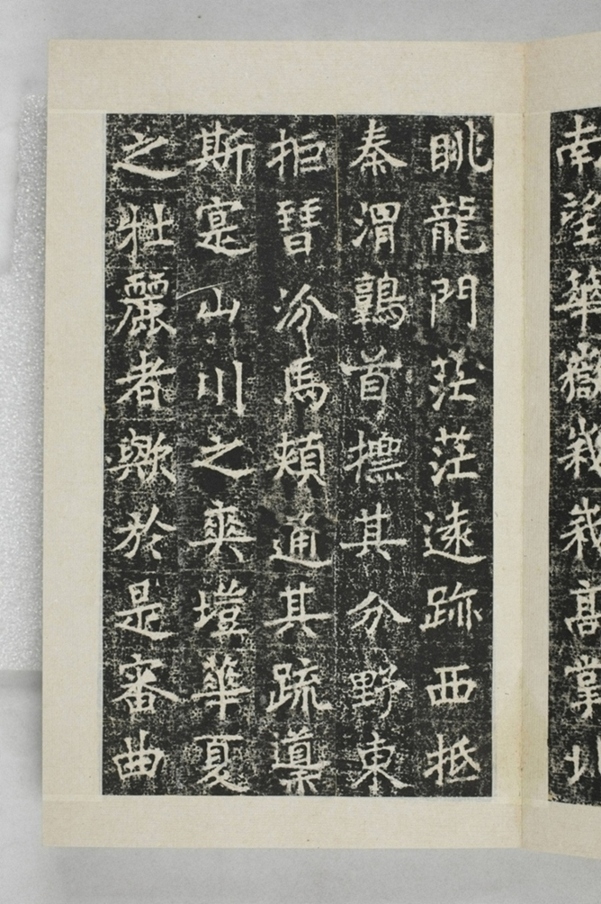 南望華嶽峩峩高掌北
眺龍門茫茫遠跡西抵
秦渭鶉首摽其分野東
拒晉汾馬頰通其疏導
斯寔山川之爽塏華夏
之壯麗者歟於是審曲